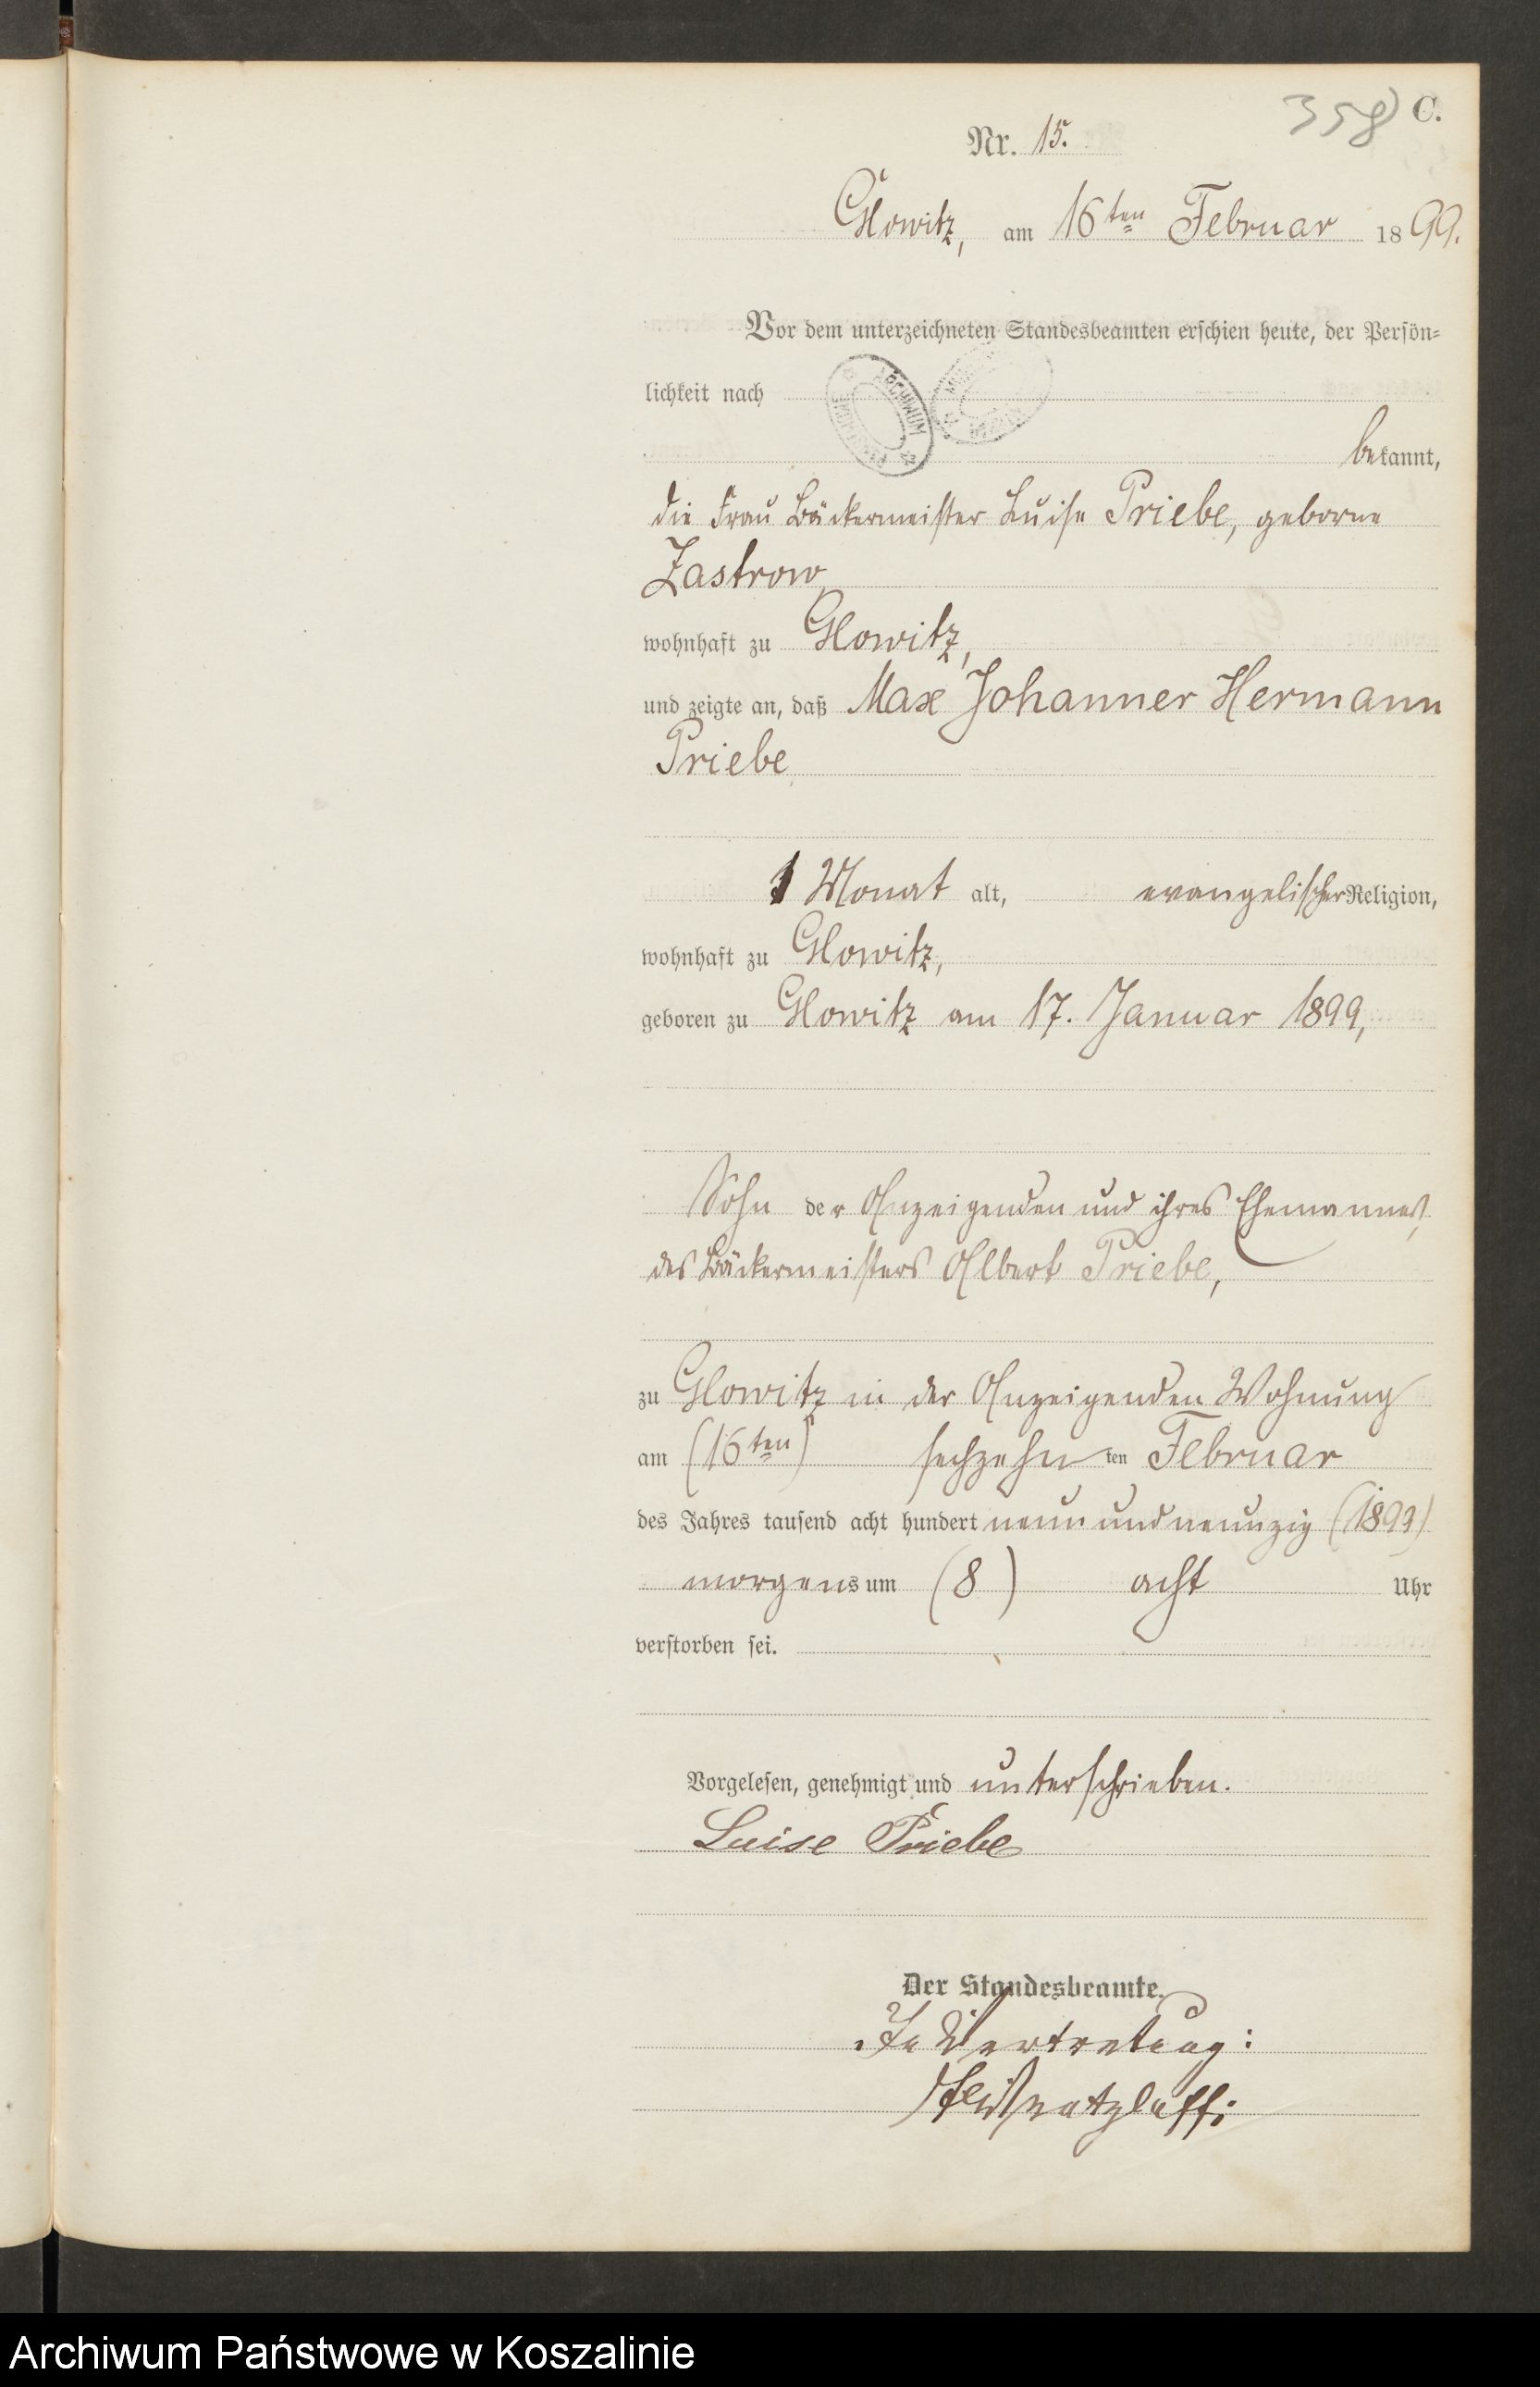 358 C.
Nr. 15.
Glowitz, am 16ten Februar 1899.
Vor dem unterzeichneten Standesbeamten erschien heute, der Persön-
lichkeit nach
ARCHIWUM
bekannt,
die Frau Bäckermeister Luise Priebe, geborne
Zastrow
wohnhaft zu Glowitz,
und zeigte an, daß Max Johannes Hermann
Priebe
1 Monat alt, evangelischer Religion,
wohnhaft zu Glowitz,
geboren zu Glowitz am 17. Januar 1899,
Sohn der Anzeigenden und ihres Ehemannes,
des Bäckermeisters Albert Priebe,
zu Glowitz in der Anzeigenden Wohnung
am (16ten) sechzehn ten Februar
des Jahres tausend acht hundert neun und neunzig (1899)
morgens um (8) acht Uhr
verstorben sei.
Vorgelesen, genehmigt und unterschrieben.
Luise Priebe
Der Standesbeamte.
In Vertretung:
Archiwum Państwowe w Koszalinie